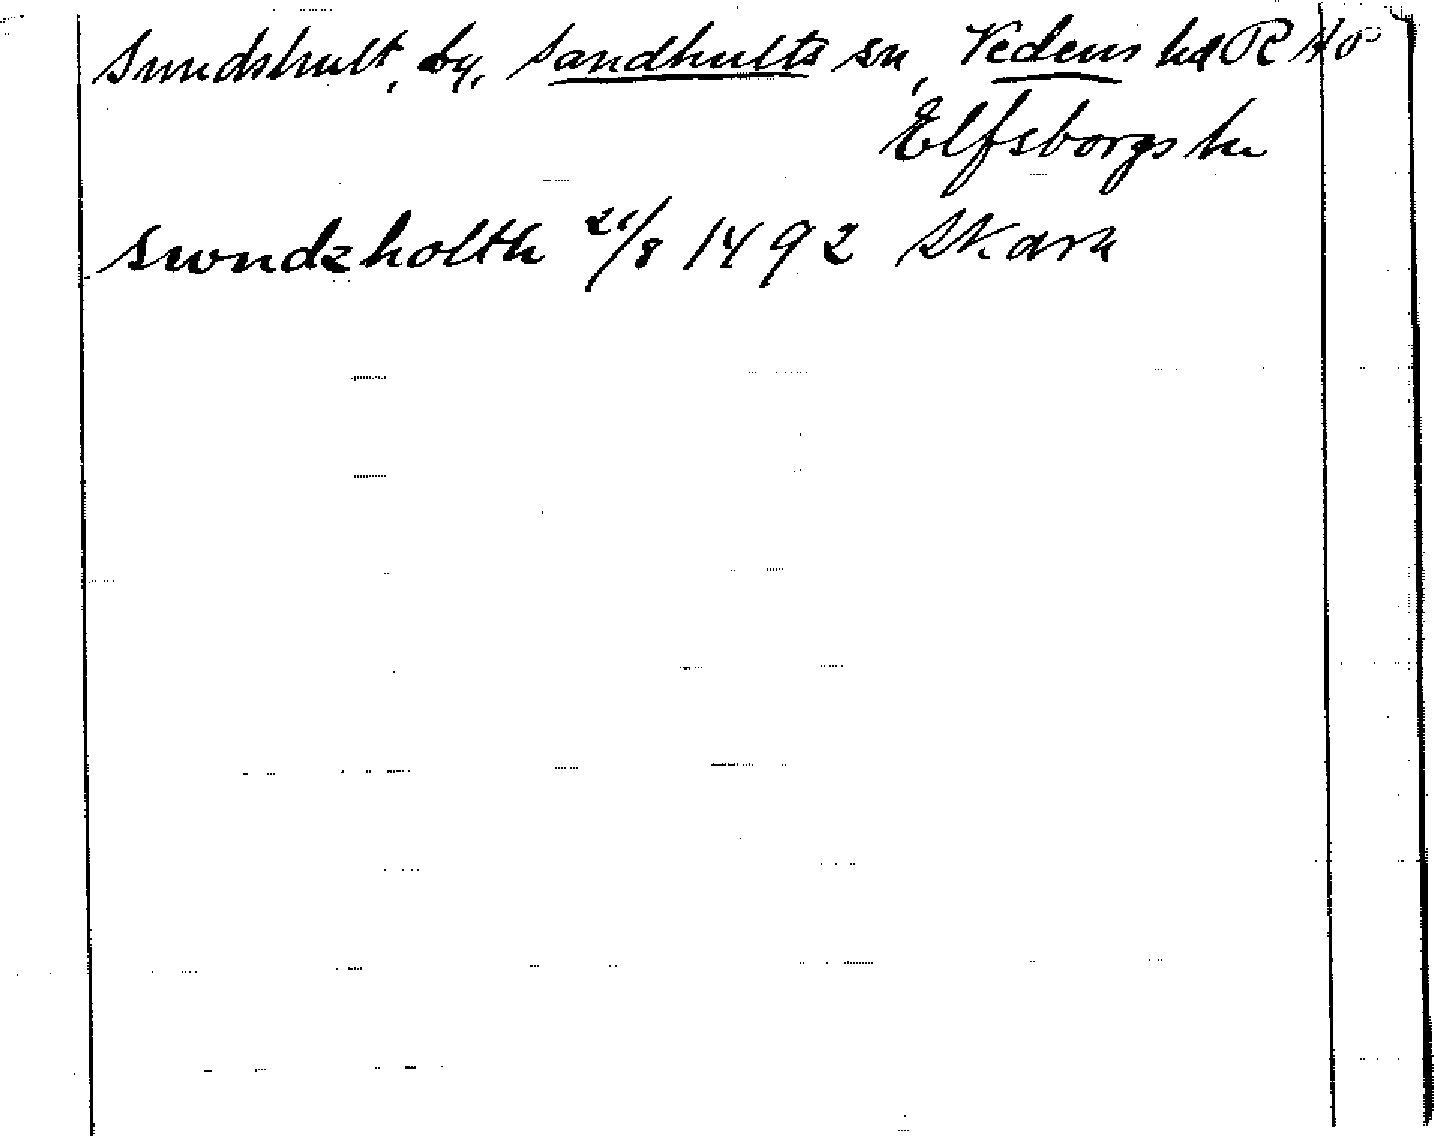 Sundshult, by, Sandhults sn, Vedens hd R Ä o
Elfsborgs län
swndzholth 21/8 1492 Skara